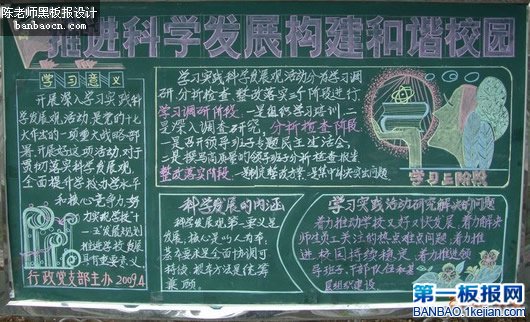 陈老师黑板报设计
banbaocn.cn
推进科学发展构建和谐校园
学习意义
开展深入学习实践科
学发展观活动是党的十七
大作出的一项重大战略部
署,开展好这项活动,对于
贯彻落实科学发展观,
全面提升学校办学水平
和核心竞争力,努
力实现学校十
一五发展规划
推进学校发展
具有重要意义
行政党支部主办 2009.4
学习实践科学发展观活动分为学习调
研 分析检查 整改落实三个阶段进行
学习调研阶段 一是组织学习培训 二
是深入调查研究, 分析检查阶段
一是召开领导班子专题民主生活会,
二是撰写高质量的领导班子分析检查报告
整改落实阶段 一是制定整改方案 是集中解决突出问题
学习三阶段
科学发展的内涵
科学发展观第一要义是
发展,核心是以人为本,
基本要求是全面协调可
持续 根本方法是统筹
兼顾
学习实践活动研究解决的问题
着力推动学校又好又快发展,着力解决
师生员工关注的热点难点问题,着力推
进校园持续稳定,着力推进领
导班子、干部队伍和基
层组织建设
第一板报网
BANBAO.1kejian.com